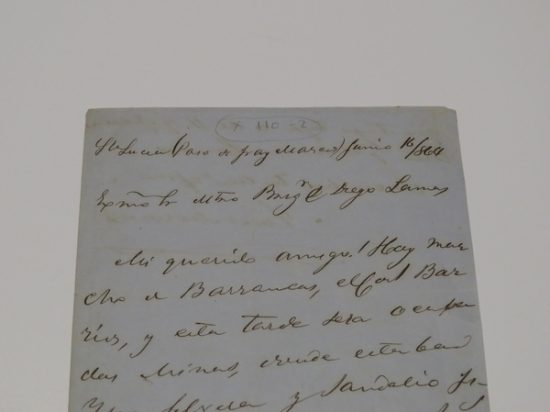 x 110-2
Sta Lucia (Paso de fray Marcos) Junio 16/864
Exmo Sr Mtro Brigr D Diego Lamas
Mi querido amigo! Hoy mar
cho a Barrancas, el Cor.l Bar
ríos, y esta tarde sera ocupa
das Minas, donde estaban
y Sandalio